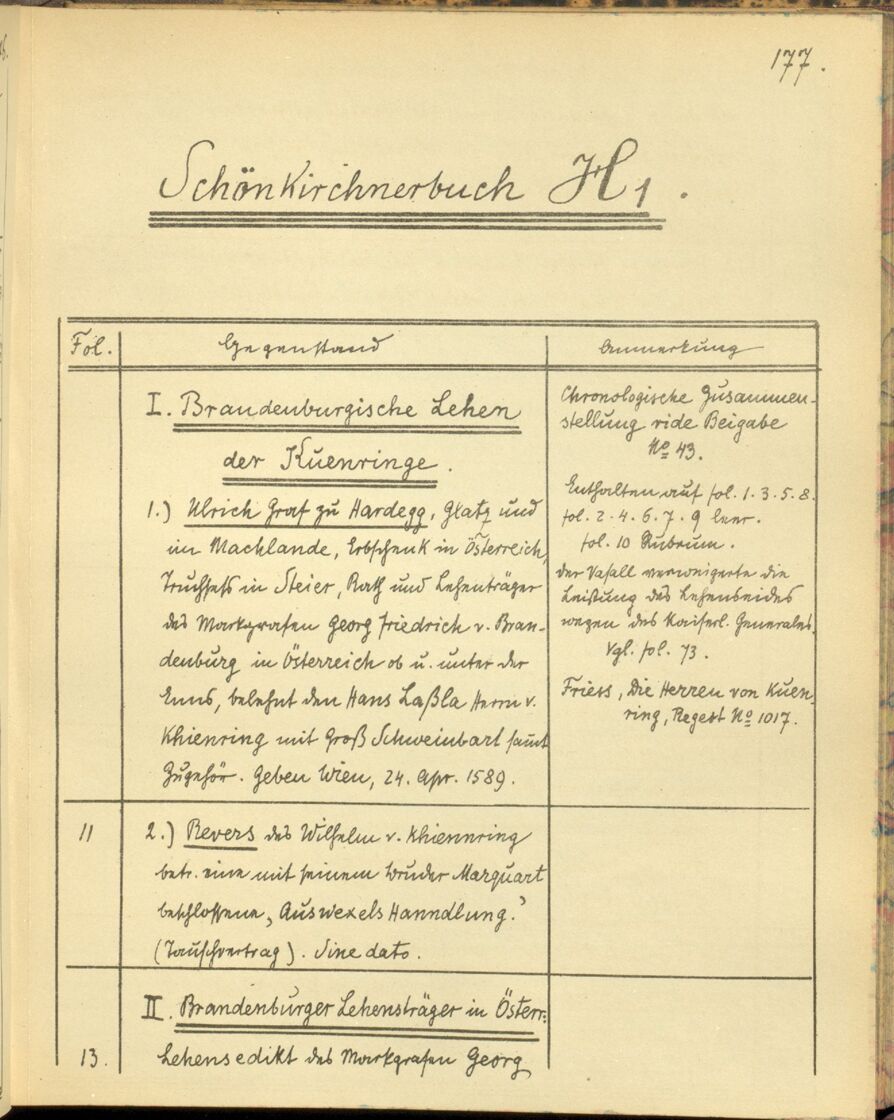 177.
Schönkirchnerbuch H1.
Fol.
Gegenstand
Anmerkung
I. Brandenburgische Lehen
der Kuenringe.
1.) Ulrich Graf zu Hardegg, Glatz und
im Machlande, Erbschenk in Österreich,
Truchseß in Steier, Rath und Lehenträger
des Markgrafen Georg Friedrich v. Bran-
denburg in Österreich ob u. unter der
Enns, belehnt den Hans Laßla Herrn v.
Khienring mit Groß Schweinbart samt
Zugehör. Geben Wien, 24. Apr. 1589.
Chronologische Zusammen-
stellung vide Beigabe
No 43.
Enthalten auf fol. 1. 3. 5. 8.
fol. 2. 4. 6. 7. 9 leer.
fol. 10 Rubrum.
der Vasall verweigerte die
Leistung des Lehenseides
wegen des Kaiserl. Generales.
Vgl. fol. 73.
Friess, Die Herren von Kuen-
ring, Regest No 1017.
11
2.) Revers des Wilhelm v. Khienring
betr. eine mit seinem Bruder Marquart
beschlossene „Auswexels Hanndlung."
(Tauschvertrag). Sine dato.
II. Brandenburger Lehensträger in Österr:
13.
Lehensedikt des Markgrafen Georg